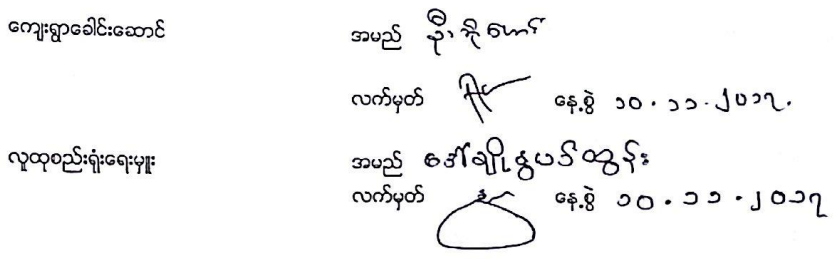 ကျေးရွာခေါင်းဆောင် အမည် ဦးဘိုဟော်
လက်မှတ် နေ့စွဲ ၁၀.၁၁.၂၀၁၇.
လူထုစည်းရုံးရေးမှူး အမည် ဒေါ်ချိုနွယ်ထွန်း
လက်မှတ် နေ့စွဲ ၁၀.၁၁.၂၀၁၇